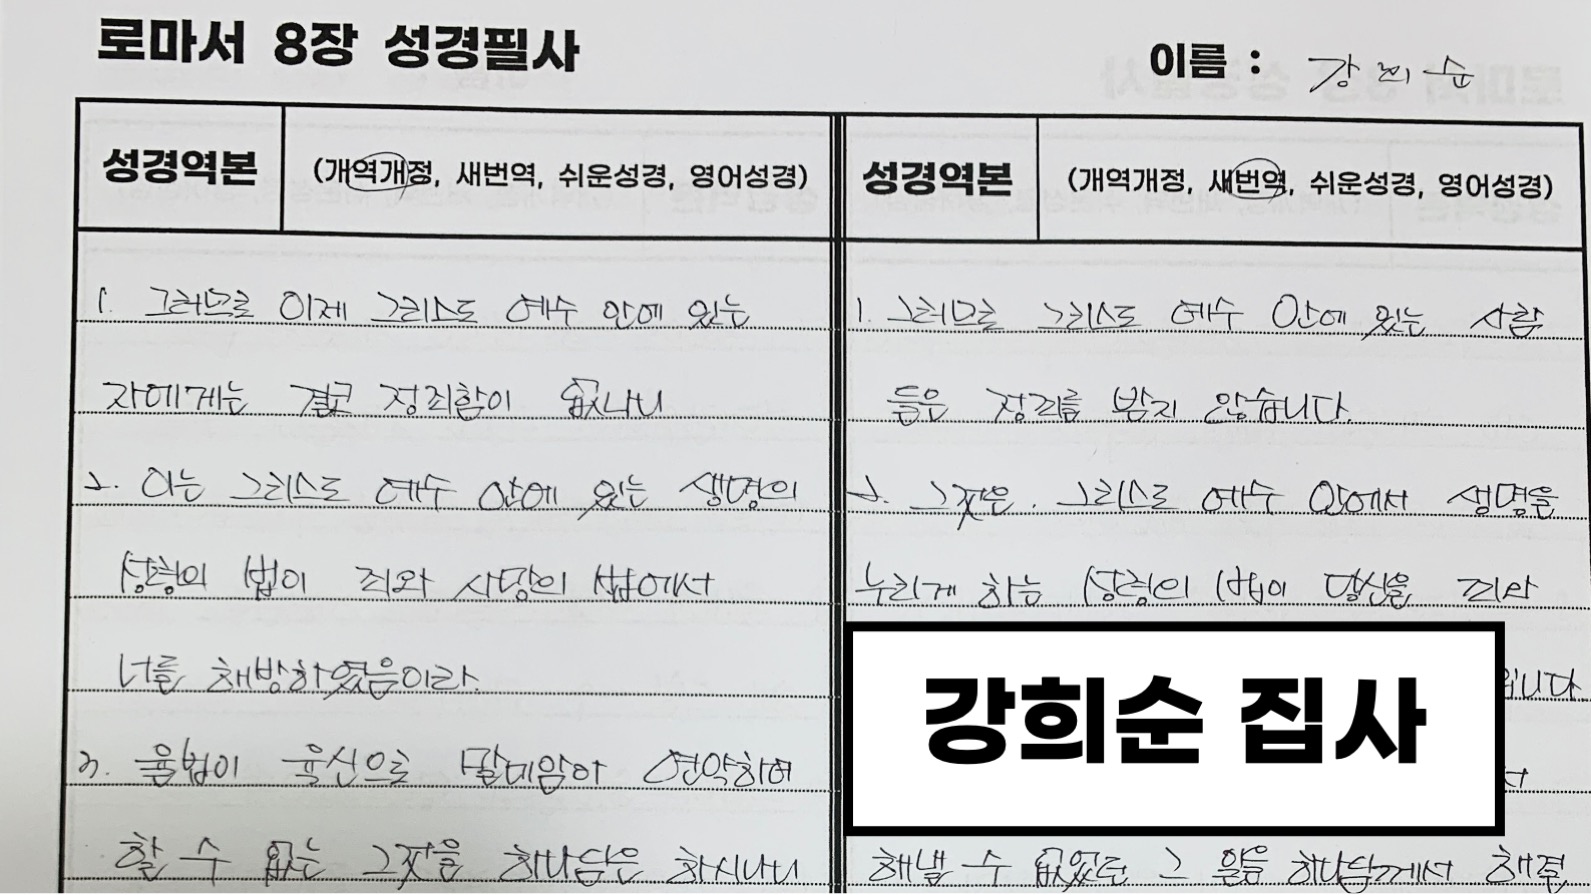 로마서 8장 성경필사
이름 : 강희순
성경역본
(개역개정, 새번역, 쉬운성경, 영어성경)
1. 그러므로 이제 그리스도 예수 안에 있는
자에게는 결코 정죄함이 없나니
2. 이는 그리스도 예수 안에 있는 생명의
성령의 법이 죄와 사망의 법에서
너를 해방하였음이라.
3. 율법이 육신으로 말미암아 연약하여
할 수 없는 그것을 하나님은 하시나니
성경역본
(개역개정, 새번역, 쉬운성경, 영어성경)
1. 그러므로 그리스도 예수 안에 있는 사람
들은 정죄를 받지 않습니다.
2. 그것은, 그리스도 예수 안에서 생명을
누리게 하는 성령의 법이 당신을 죄와
입니다.
서
해낼 수 없었던 그 일을 하나님께서 해결
강희순 집사